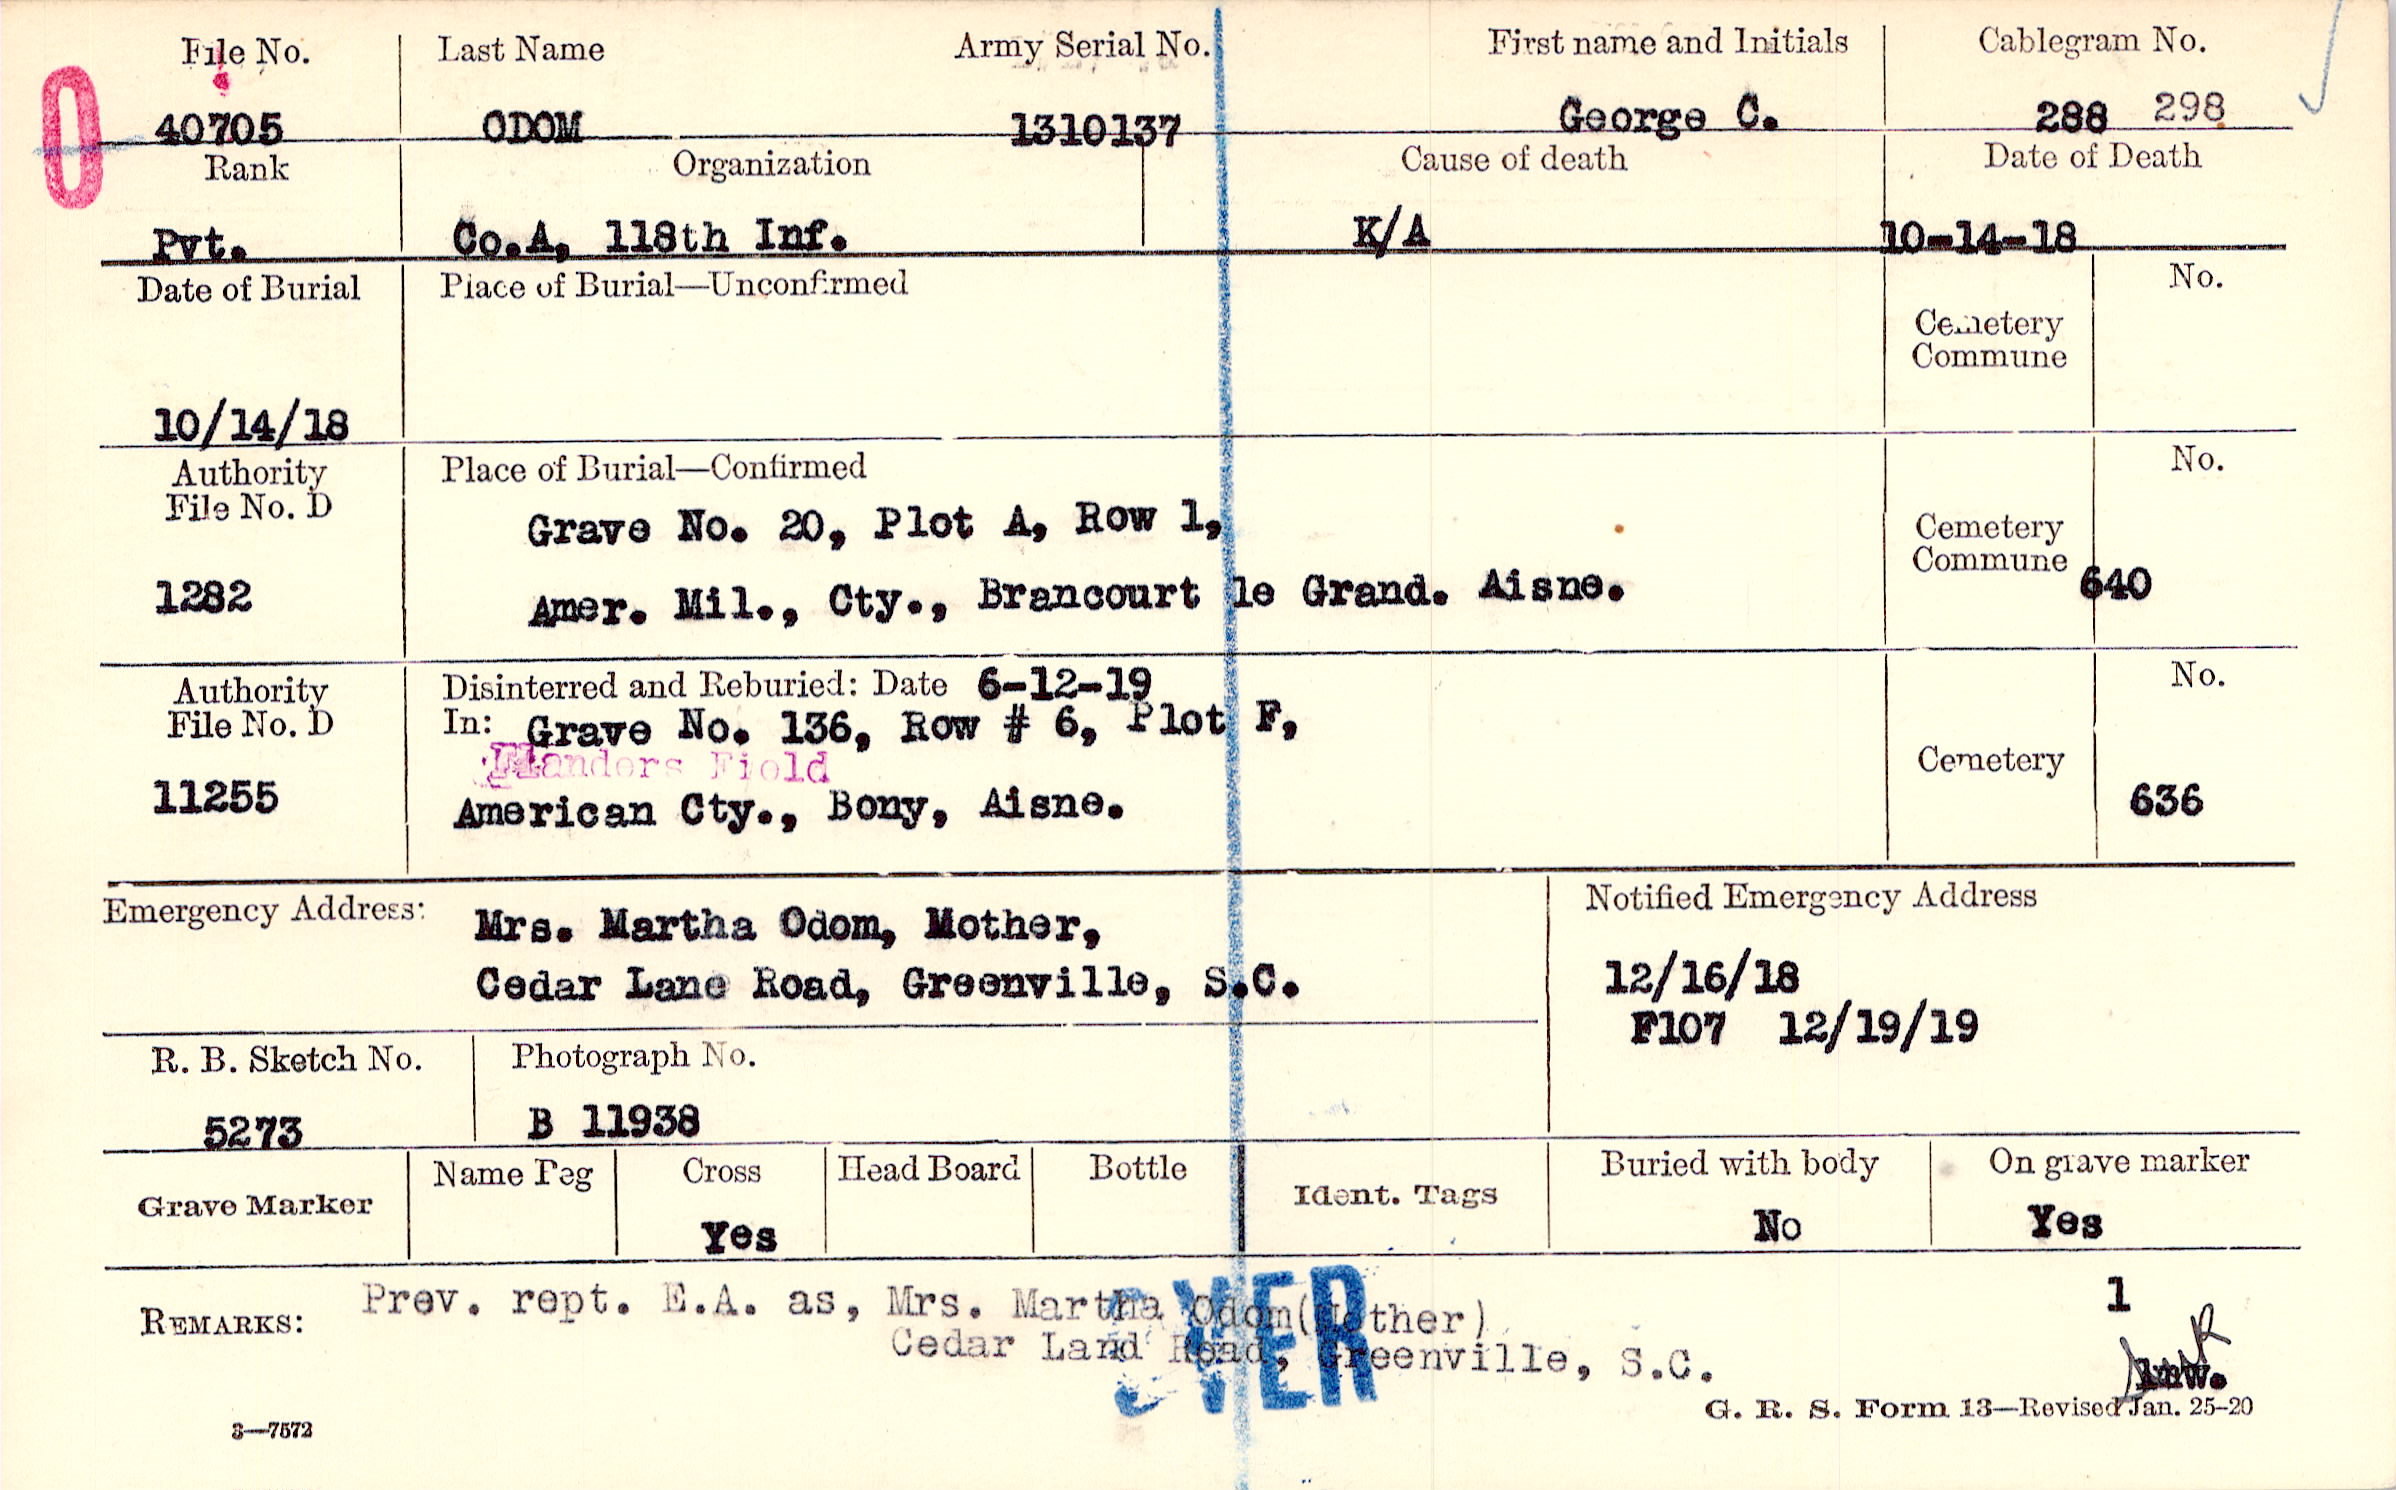 File No. Last Name Army Serial No. First name and Initials Cablegram No.
O
40705 ODOM 1310137 George C. 288 298
Rank Organization Cause of death Date of Death
Pvt. Co.A, 118th Inf. K/A 10-14-18
Date of Burial Place of Burial—Unconfirmed No.
Cemetery
Commune
10/14/18
Authority Place of Burial—Confirmed No.
File No. D
Grave No. 20, Plot A, Row 1,
Cemetery
Commune
1282 Amer. Mil., Cty., Brancourt le Grand. Aisne. 640
Authority Disinterred and Reburied: Date 6-12-19 No.
File No. D In: Grave No. 136, Row # 6, Plot F,
Flanders Field
Cemetery
11255 American Cty., Bony, Aisne. 636
Emergency Address: Mrs. Martha Odom, Mother,
Cedar Lane Road, Greenville, S.C.
Notified Emergency Address
12/16/18
F107 12/19/19
R. B. Sketch No. Photograph No.
5273 B 11938
Grave Marker Name Peg Cross Head Board Bottle Ident. Tags Buried with body On grave marker
Yes No Yes
REMARKS: Prev. rept. E.A. as, Mrs. Martha Odom(Mother) 1
Cedar Land Road, Greenville, S.C.
OVER
lmw.
G. R. S. Form 13—Revised Jan. 25-20
3—7572